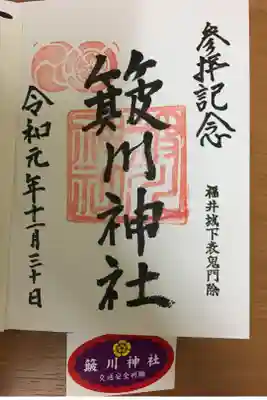 参拝記念
福井城下表鬼門除
簸川神社
令和元年十一月三十日
簸川神社
交通安全祈願